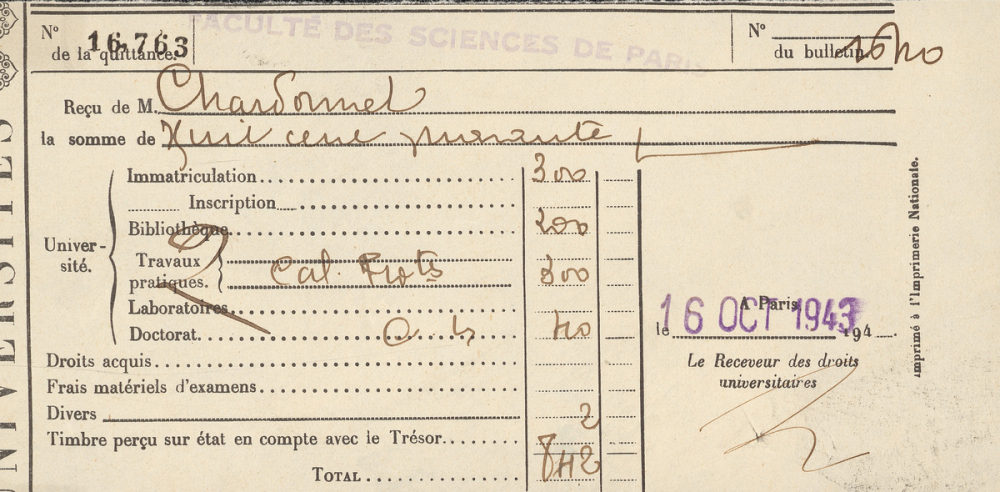 FACULTÉ DES SCIENCES DE PARIS
Nº de la quittance. 16.763
Nº du bulletin
Reçu de M. Chardonnet
la somme de Huit cent quarante
UNIVERSITÉS
Université.
Immatriculation 300
Inscription
Bibliothèque 200
Travaux pratiques. Cal. Probtés 300
Laboratoires
Doctorat 40
Droits acquis
Frais matériels d'examens
Divers 2
Timbre perçu sur état en compte avec le Trésor
TOTAL 842
A Paris,
le 16 OCT 1943 194
Le Receveur des droits
universitaires
Imprimé à l'Imprimerie Nationale.